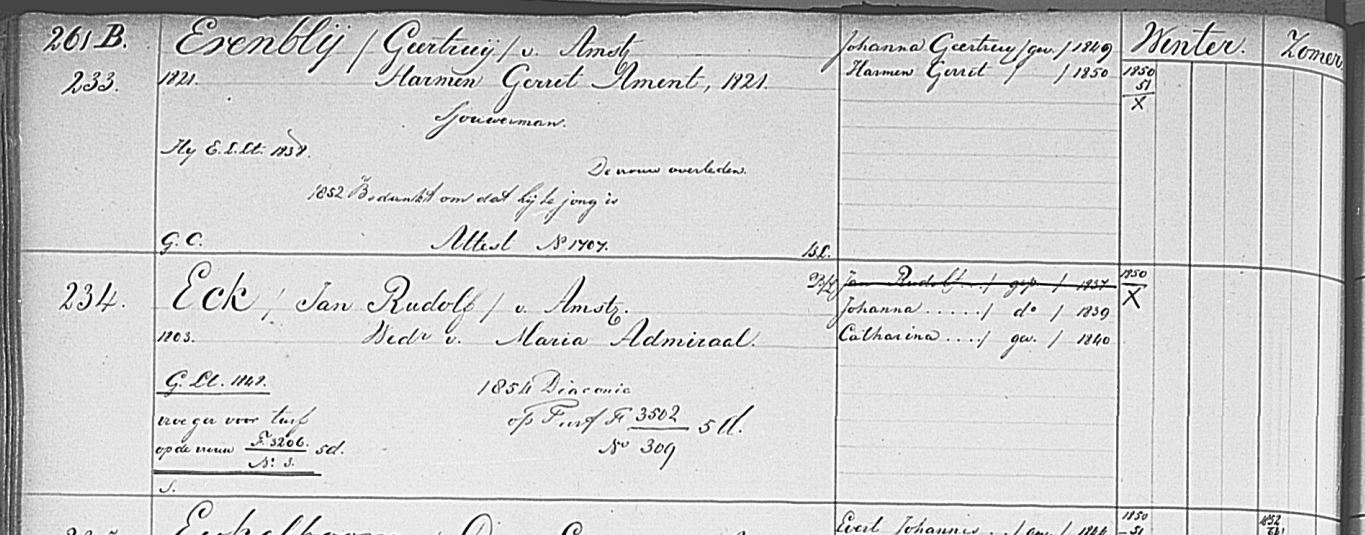 261 B. Erenblij / Geertruij / v. Amst. Johanna Geertruy / gev. / 1849 Winter. Zomer
233. 1821. Harmen Gerret Ament, 1821. Harmen Gerrit / / 1850 1850
51
X
Sjouwerman.
Hy E. L. Lt. 1838.
De vrouw overleden.
1852 Bedankt om dat hij te jong is
G. C. Attest No 1707. B.L.
234. Eck / Jan Rudolf / v. Amst. Jan Rudolf / gep / 1837 1850
X
Johanna ..... / do / 1839
1803. Wedr v. Maria Admiraal. Catharina .... / gev. / 1840
G. Lt. 1848. 1854 Diaconie
vroeger voor turf op Turf F 3502 5 d.
No 309
op de vrouw F. 3206. 5d.
No. 3.
S.
Evert Johannes .. / gev. / 1844 1850
51
1852